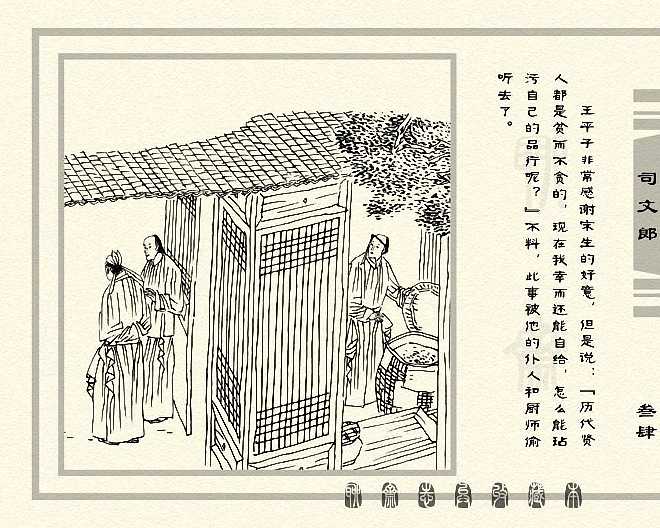 王平子非常感谢宋生的好意，但是说：『历代贤
人都是贫而不贪的，现在我幸而还能自给，怎么能玷
污自己的品行呢？』不料，此事被他的仆人和厨师偷
听去了。
司文郎
叁肆